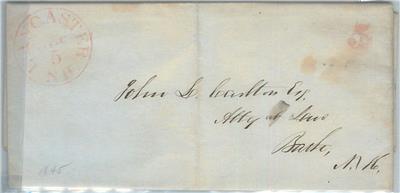 LANCASTER
5
N.H.
5
John L. Carlton Esq.
Atty at Law
Bath,
N.H.
1845